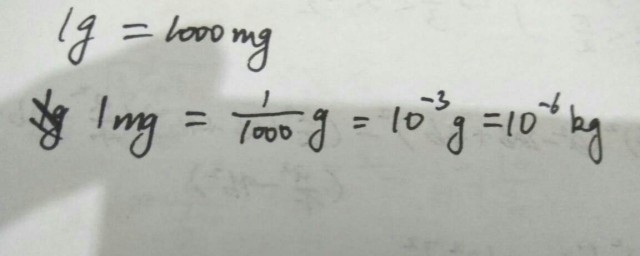 1g = 1000mg
1mg = 1/1000 g = 10⁻³g = 10⁻⁶ kg